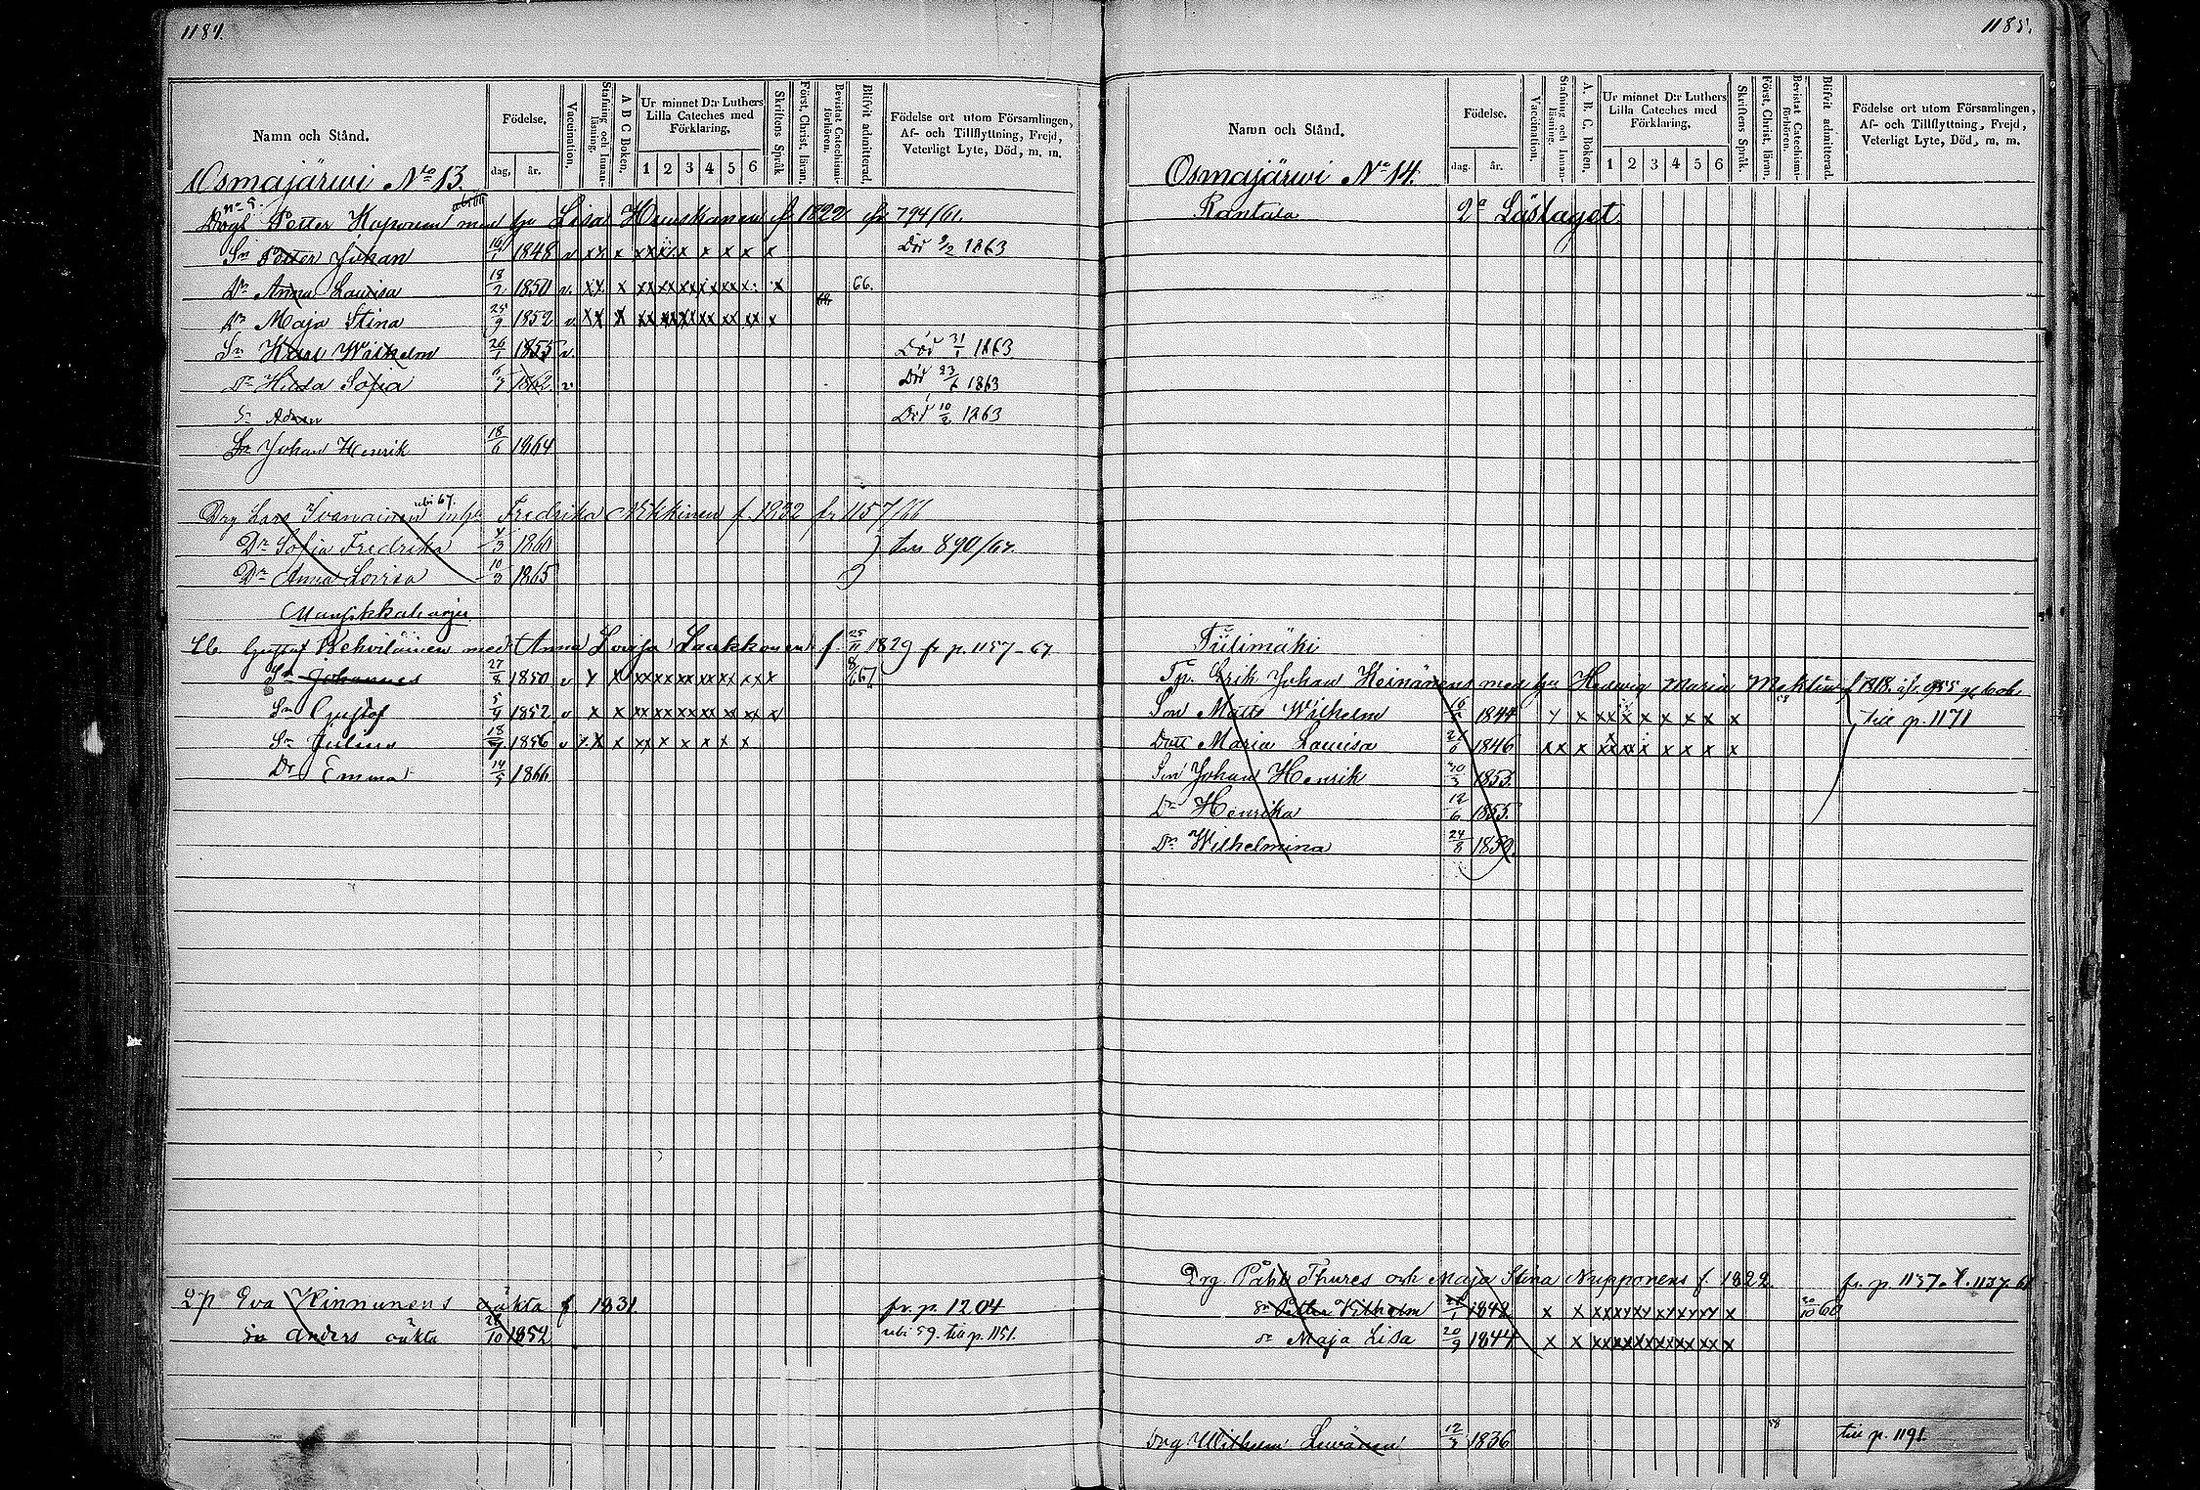 1184.
Namn och Stånd.
Födelse.
dag. år.
Vaccination.
Stafning och Innanläsning.
A B C Boken.
Ur minnet D:r Luthers Lilla Cateches med Förklaring.
1 2 3 4 5 6
Skriftens Språk
Först. Christ. läran.
Bevistat Catechismiförhören.
Blifvit admitterad.
Födelse ort utom Församlingen, Af- och Tillflyttning, Frejd, Veterligt Lyte, Död, m. m.
Osmajärwi No 13.
Petter med hu Lisa f. 1822 fr 794/61.
Sn Petter Johan 1848 v xx x x x x x x Död 9/2 1863
Dr Anna Lauisa 18/2 1850 v. xx x xx xx xx xx xx x x 66.
Dr Maja Stina 25/9 1852 v xx x xx xx xx xx xx xx x
Sn Karl Wilhelm 26/1 1855 v. Död 31/1 1863
Dr Sofia 1862 v Död 23/6 1863
Sn Adam Död 10/2 1863
Sn Johan Henrik 18/6 1864
Drg Lars Ivanainen ubi 67. m hu Fredrika f. 1832 fr 1157/66
Dr Sofia Fredrika 4/3 1860 890/67.
Dr Anna Lovisa 10/3 1865
Mansikkaharju
Gustaf Kehviläinen med Anna Lovisa Laakkonen f. 25/11 1829 fr p. 1157-67
Sn Johannes 27/8 1850 v x x xx xx xx xx xx xx x 67
Sn Gustaf 5/9 1852 v x x xx xx xx xx xx xx x
Sn Julius 1856 v x x x xx x x x x x
Dr Emma 14/5 1866
Eva Kinnunens oäkta f. 1831 fr. p. 1204
Sn Anders oäkta 28/10 1852 ubi 59. till p. 1151.
1185.
Namn och Stånd.
Födelse.
dag. år.
Vaccination.
Stafning och Innanläsning.
A. B. C. Boken.
Ur minnet D:r Luthers Lilla Cateches med Förklaring.
1 2 3 4 5 6
Skriftens Språk.
Först. Christ. läran.
Bevistat Catechismiförhören.
Blifvit admitterad.
Födelse ort utom Församlingen, Af- och Tillflyttning, Frejd, Veterligt Lyte, Död, m. m.
Osmajärwi No 14.
Rantala 2a Läslaget
Tülimäki
Tp. Erik Johan Heinänens med hu Hedwig Maria f 1818.
Son Matts Wilhelm 1844 x x xx x x x x x x till p. 1171
Dott Maria Lauisa 1846 xx x xx x x x x x x
Son Johan Henrik 1853.
Dr Henrika 12/6 1855.
Dr Wilhelmina 24/8 1859.
Drg. Påhl Thures och Maja Stina Nupponens f. 1822 fr. p. 1137.
Sn Petter Vilhelm 1842 x x xx xx xx xx xx xx x 20/10 60
Dr Maja Lisa 20/9 1844 x x xx xx xx xx xx xx x
Drg Wilhelm 12/3 1836 58 till p. 1191.